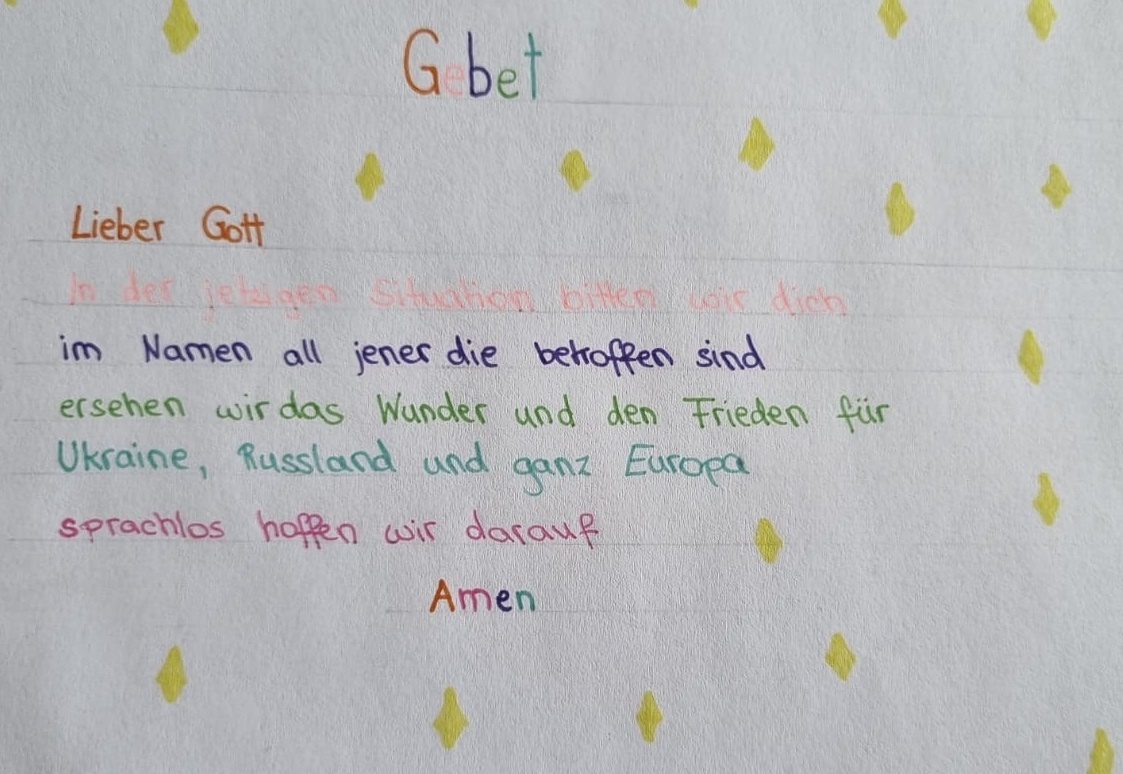 Gebet
Lieber Gott
In der jetzigen Situation bitten wir dich
im Namen all jener die betroffen sind
ersehen wir das Wunder und den Frieden für
Ukraine, Russland und ganz Europa
sprachlos hoffen wir darauf
Amen